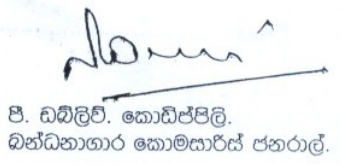 පී. ඩබ්ලිව්. කොඩිප්පිලි.
බන්ධනාගාර කොමසාරිස් ජනරාල්.